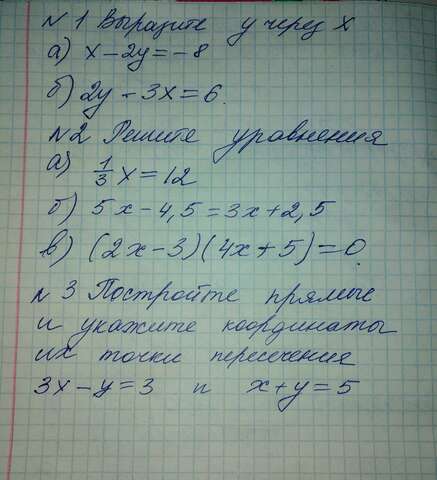 № 1 Выразите у через х
а) x – 2y = – 8
б) 2y – 3x = 6.
№2 Решите уравнения
а) 1/3 x = 12
б) 5x – 4,5 = 3x + 2,5
в) (2x – 3)(4x + 5) = 0.
№ 3 Постройте прямые
и укажите координаты
их точки пересечения
3x – y = 3 и x + y = 5